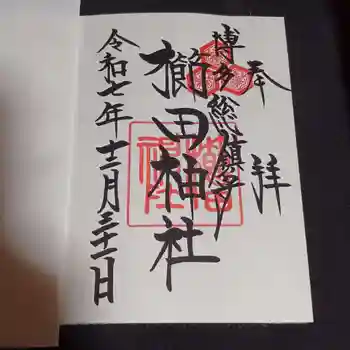 奉拝
博多総鎮守
櫛田神社
令和七年十二月三十一日